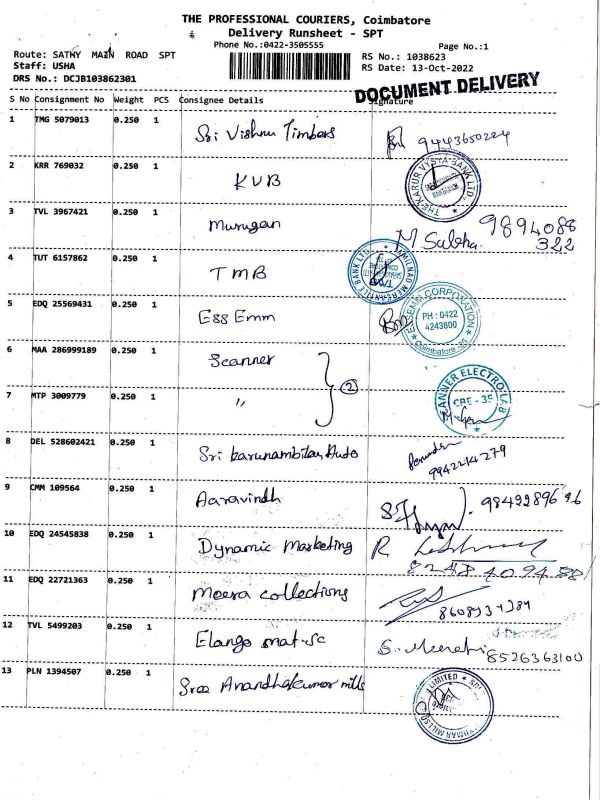 THE PROFESSIONAL COURIERS, Coimbatore
Delivery Runsheet - SPT
Phone No.:0422-3505555
Page No.:1
Route: SATHY MAIN ROAD SPT
RS No.: 1038623
Staff: USHA
RS Date: 13-Oct-2022
DRS No.: DCJB103862301
DOCUMENT DELIVERY
S No Consignment No Weight PCS Consignee Details Signature
1 TMG 5079013 0.250 1 Sri Vishnu Timbers 9443650224
2 KRR 769032 0.250 1 KVB THE KARUR VYSYA BANK LTD.
3 TVL 3967421 0.250 1 Murugan M. Subha. 9894088
322
4 TUT 6157862 0.250 1 TMB TAMILNAD MERCANTILE BANK LTD. TMB
5 EDQ 25569431 0.250 1 Ess Emm ESSEMM CORPORATION PH : 0422 4243800 Coimbatore-35
6 MAA 286999189 0.250 1 Scanner 2
7 MTP 3009779 0.250 1 " ANNER ELECTRO LAB CBE - 35
8 DEL 528602421 0.250 1 Sri karunambikay Auto 9942214279
9 CMM 109564 0.250 1 Aaravindh 9849289696
10 EDQ 24545838 0.250 1 Dynamic Marketing R
8248409488
11 EDQ 22721363 0.250 1 Meera collections
12 TVL 5499203 0.250 1 Elango mat.sc S. Meerahi
8526363100
13 PLN 1394507 0.250 1 Sree Anandhakumar mills LIMITED KUMAR MILLS